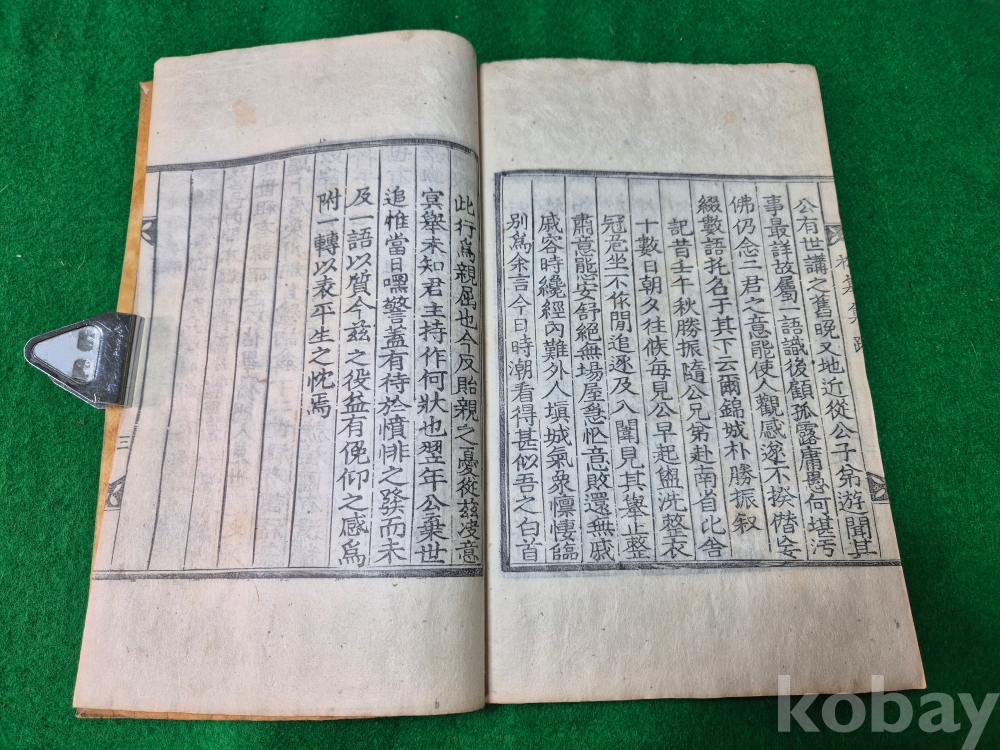 公有世講之舊晩又地近從公子弟遊聞其
事最詳故屬一語識後顧孤露庸愚何堪汚
佛仍念二君之意能使人觀感遂不揆僭妄
綴數語托名于其下云爾錦城朴勝振叙
記昔壬午秋勝振隨公兄弟赴南省比舍
十數日朝夕往候每見公早起盥洗整衣
冠危坐不作閒追逐及入闈見其擧止整
肅意態安舒絕無場屋悤忙意敗還無戚
戚容時纔經內難外人塡城氣象凜悽臨
別爲余言今日時潮看得甚似吾之白首
此行爲親屈也今反貽親之憂從玆凌意
冥擧未知君主持作何狀也翌年公棄世
追惟當日嘿警盖有待於憤悱之發而未
及一語以質今玆之役益有俛仰之感爲
附一轉以表平生之忱焉
三
kobay